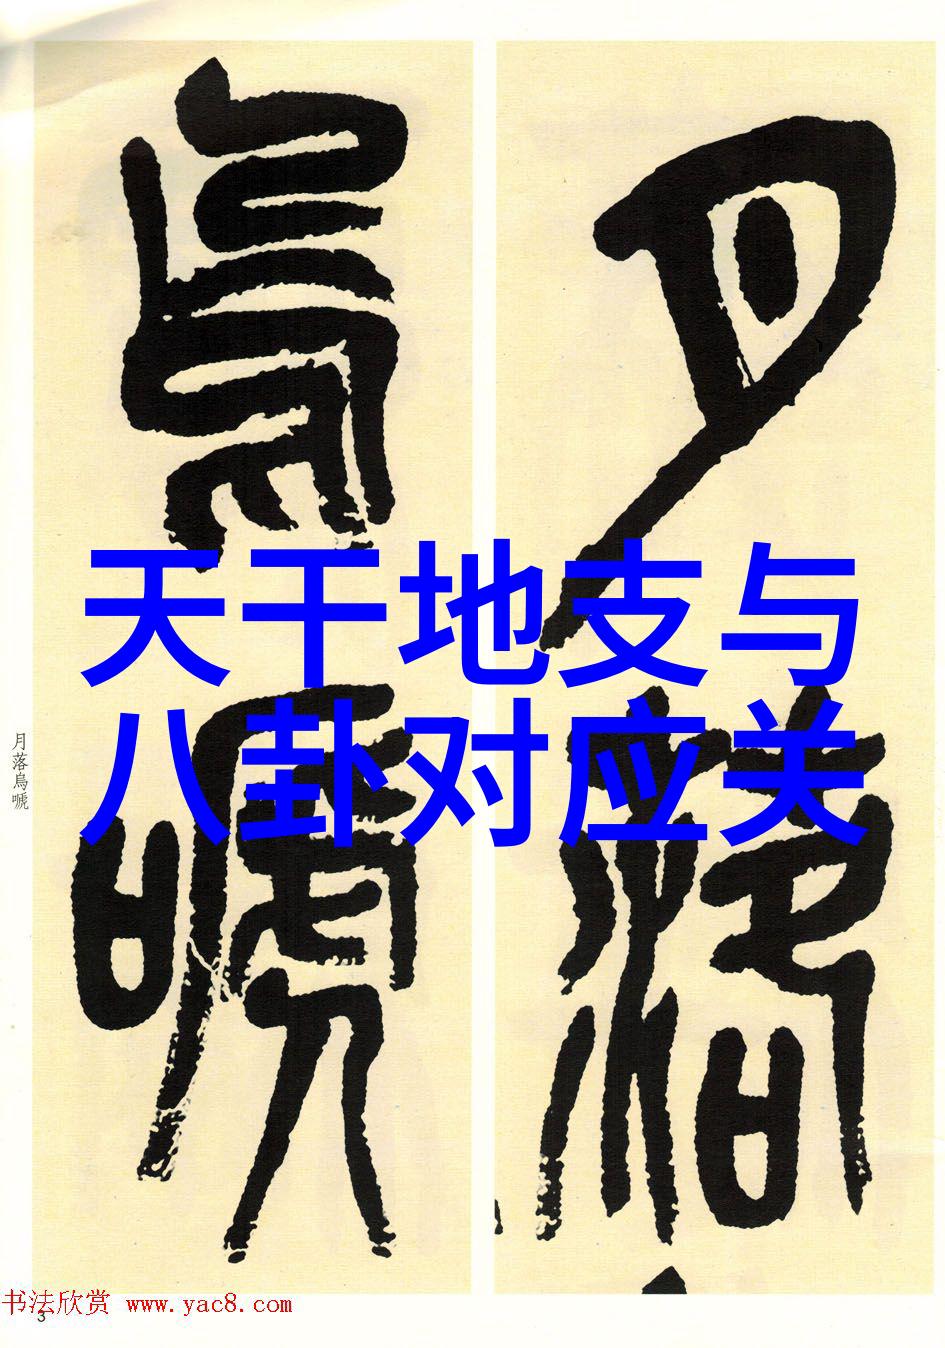 月落
烏嗁
天干地支与
八卦对应关
月落烏嗁
书法欣赏 www.yac8.com
3